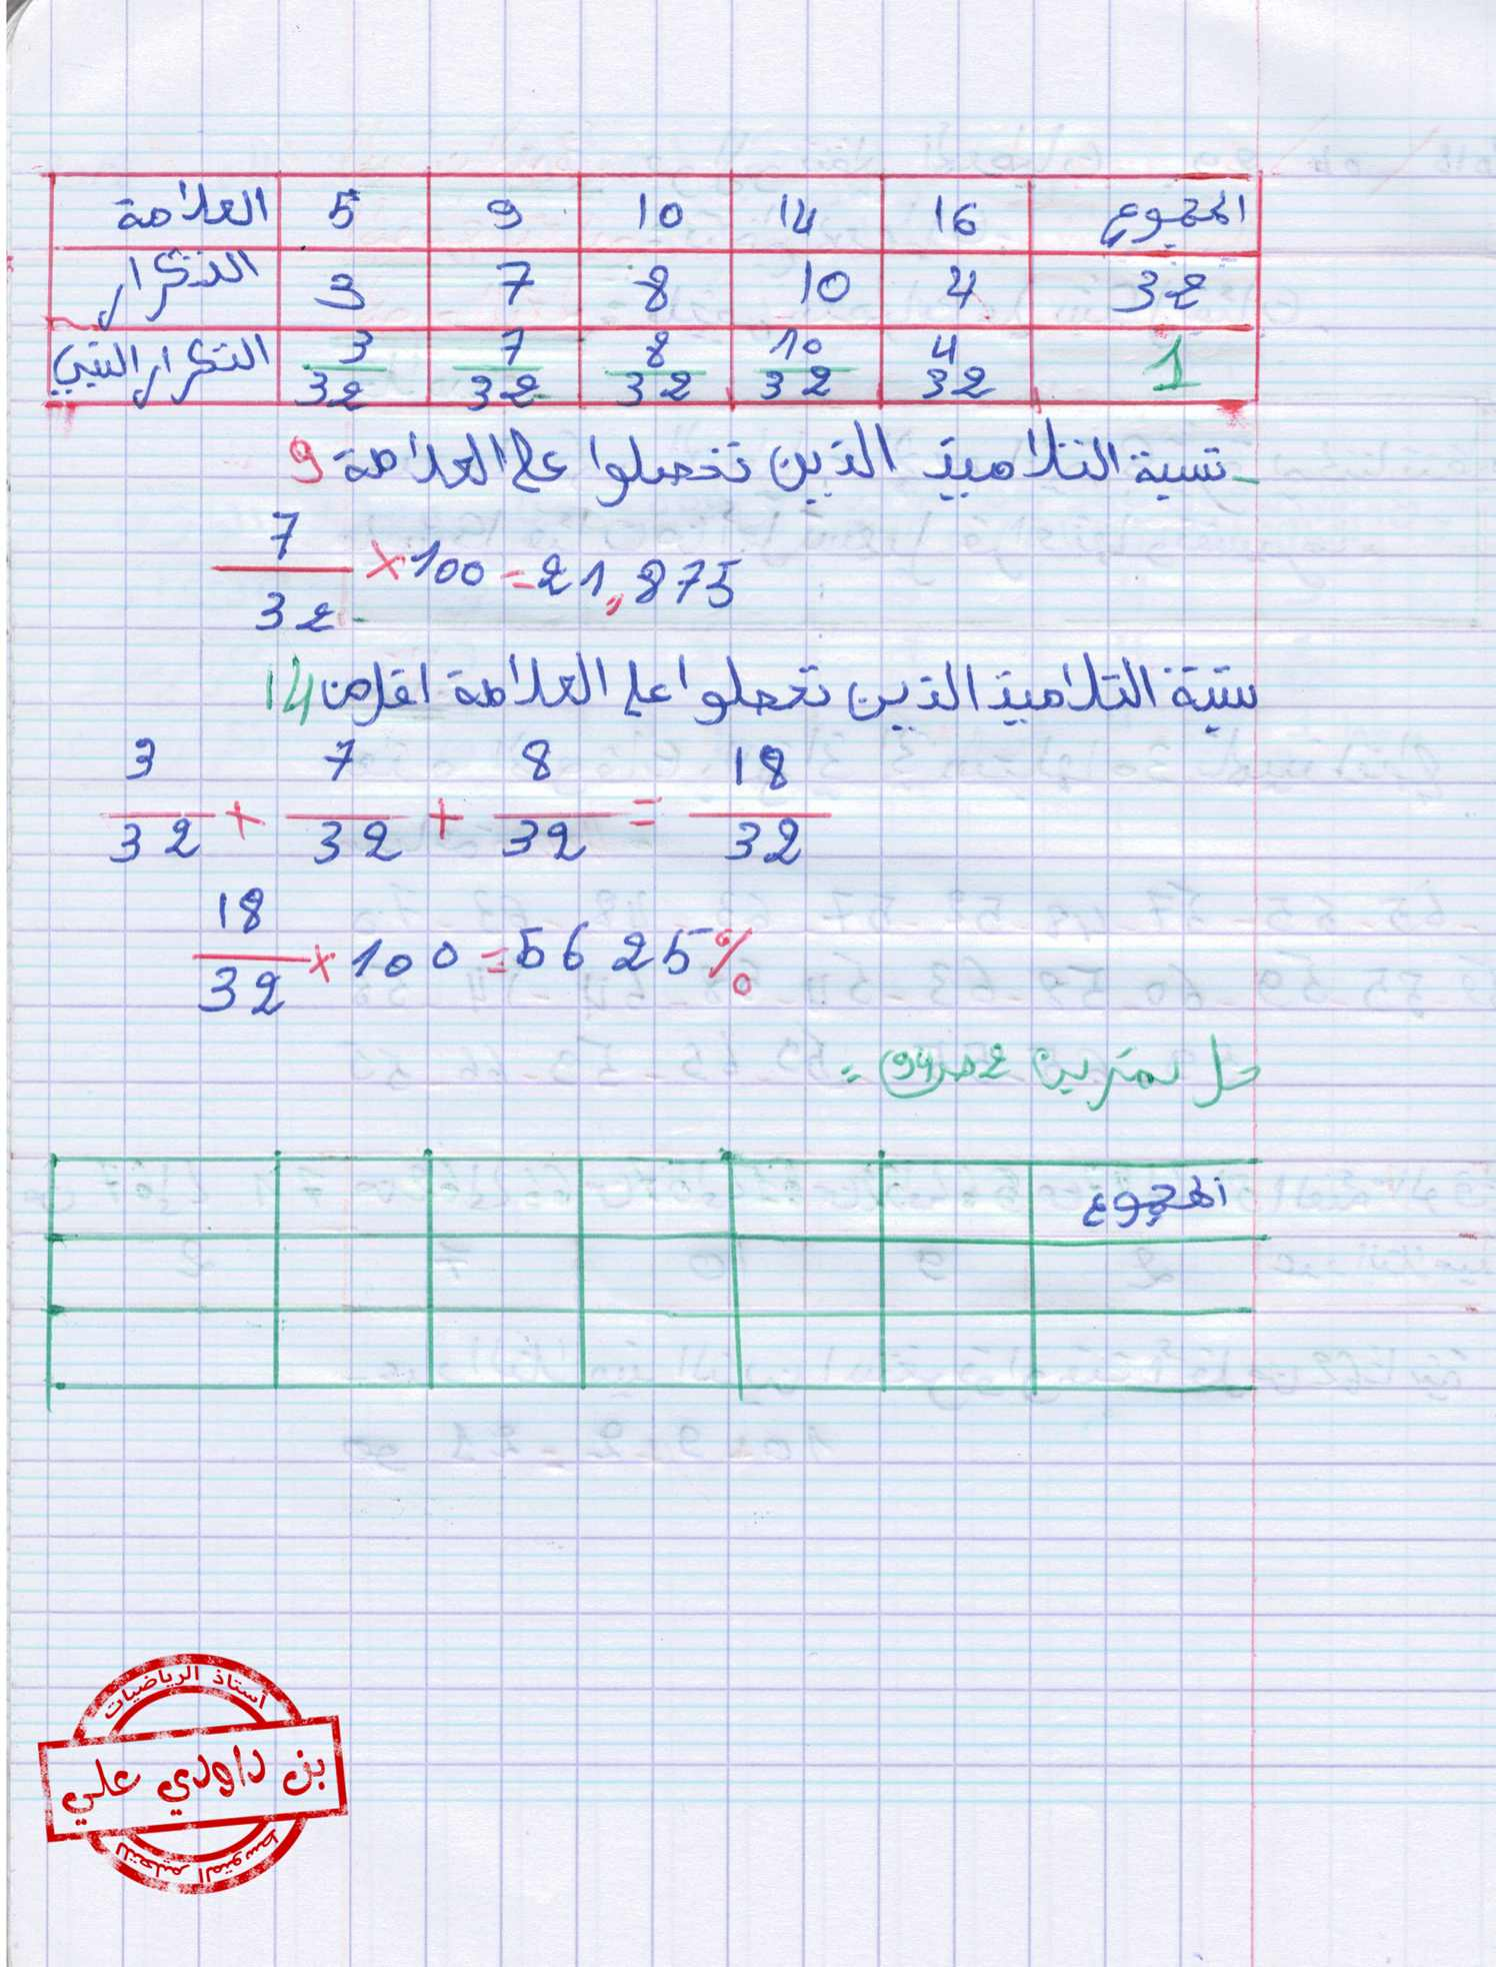 العلامة 5 9 10 14 16 المجموع
التكرار 3 7 8 10 4 32
التكرار النسبي 3/32 7/32 8/32 10/32 4/32 1
نسبة التلاميذ الذين تحصلوا على العلامة 9
7/32 × 100 = 21,875
نسبة التلاميذ الذين تحصلوا على العلامة اقل من 14
3/32 + 7/32 + 8/32 = 18/32
18/32 × 100 = 56 25 %
حل تمرين 2 ص 94 =
المجموع
أستاذ الرياضيات
بن داودي علي
للتعليم المتوسط